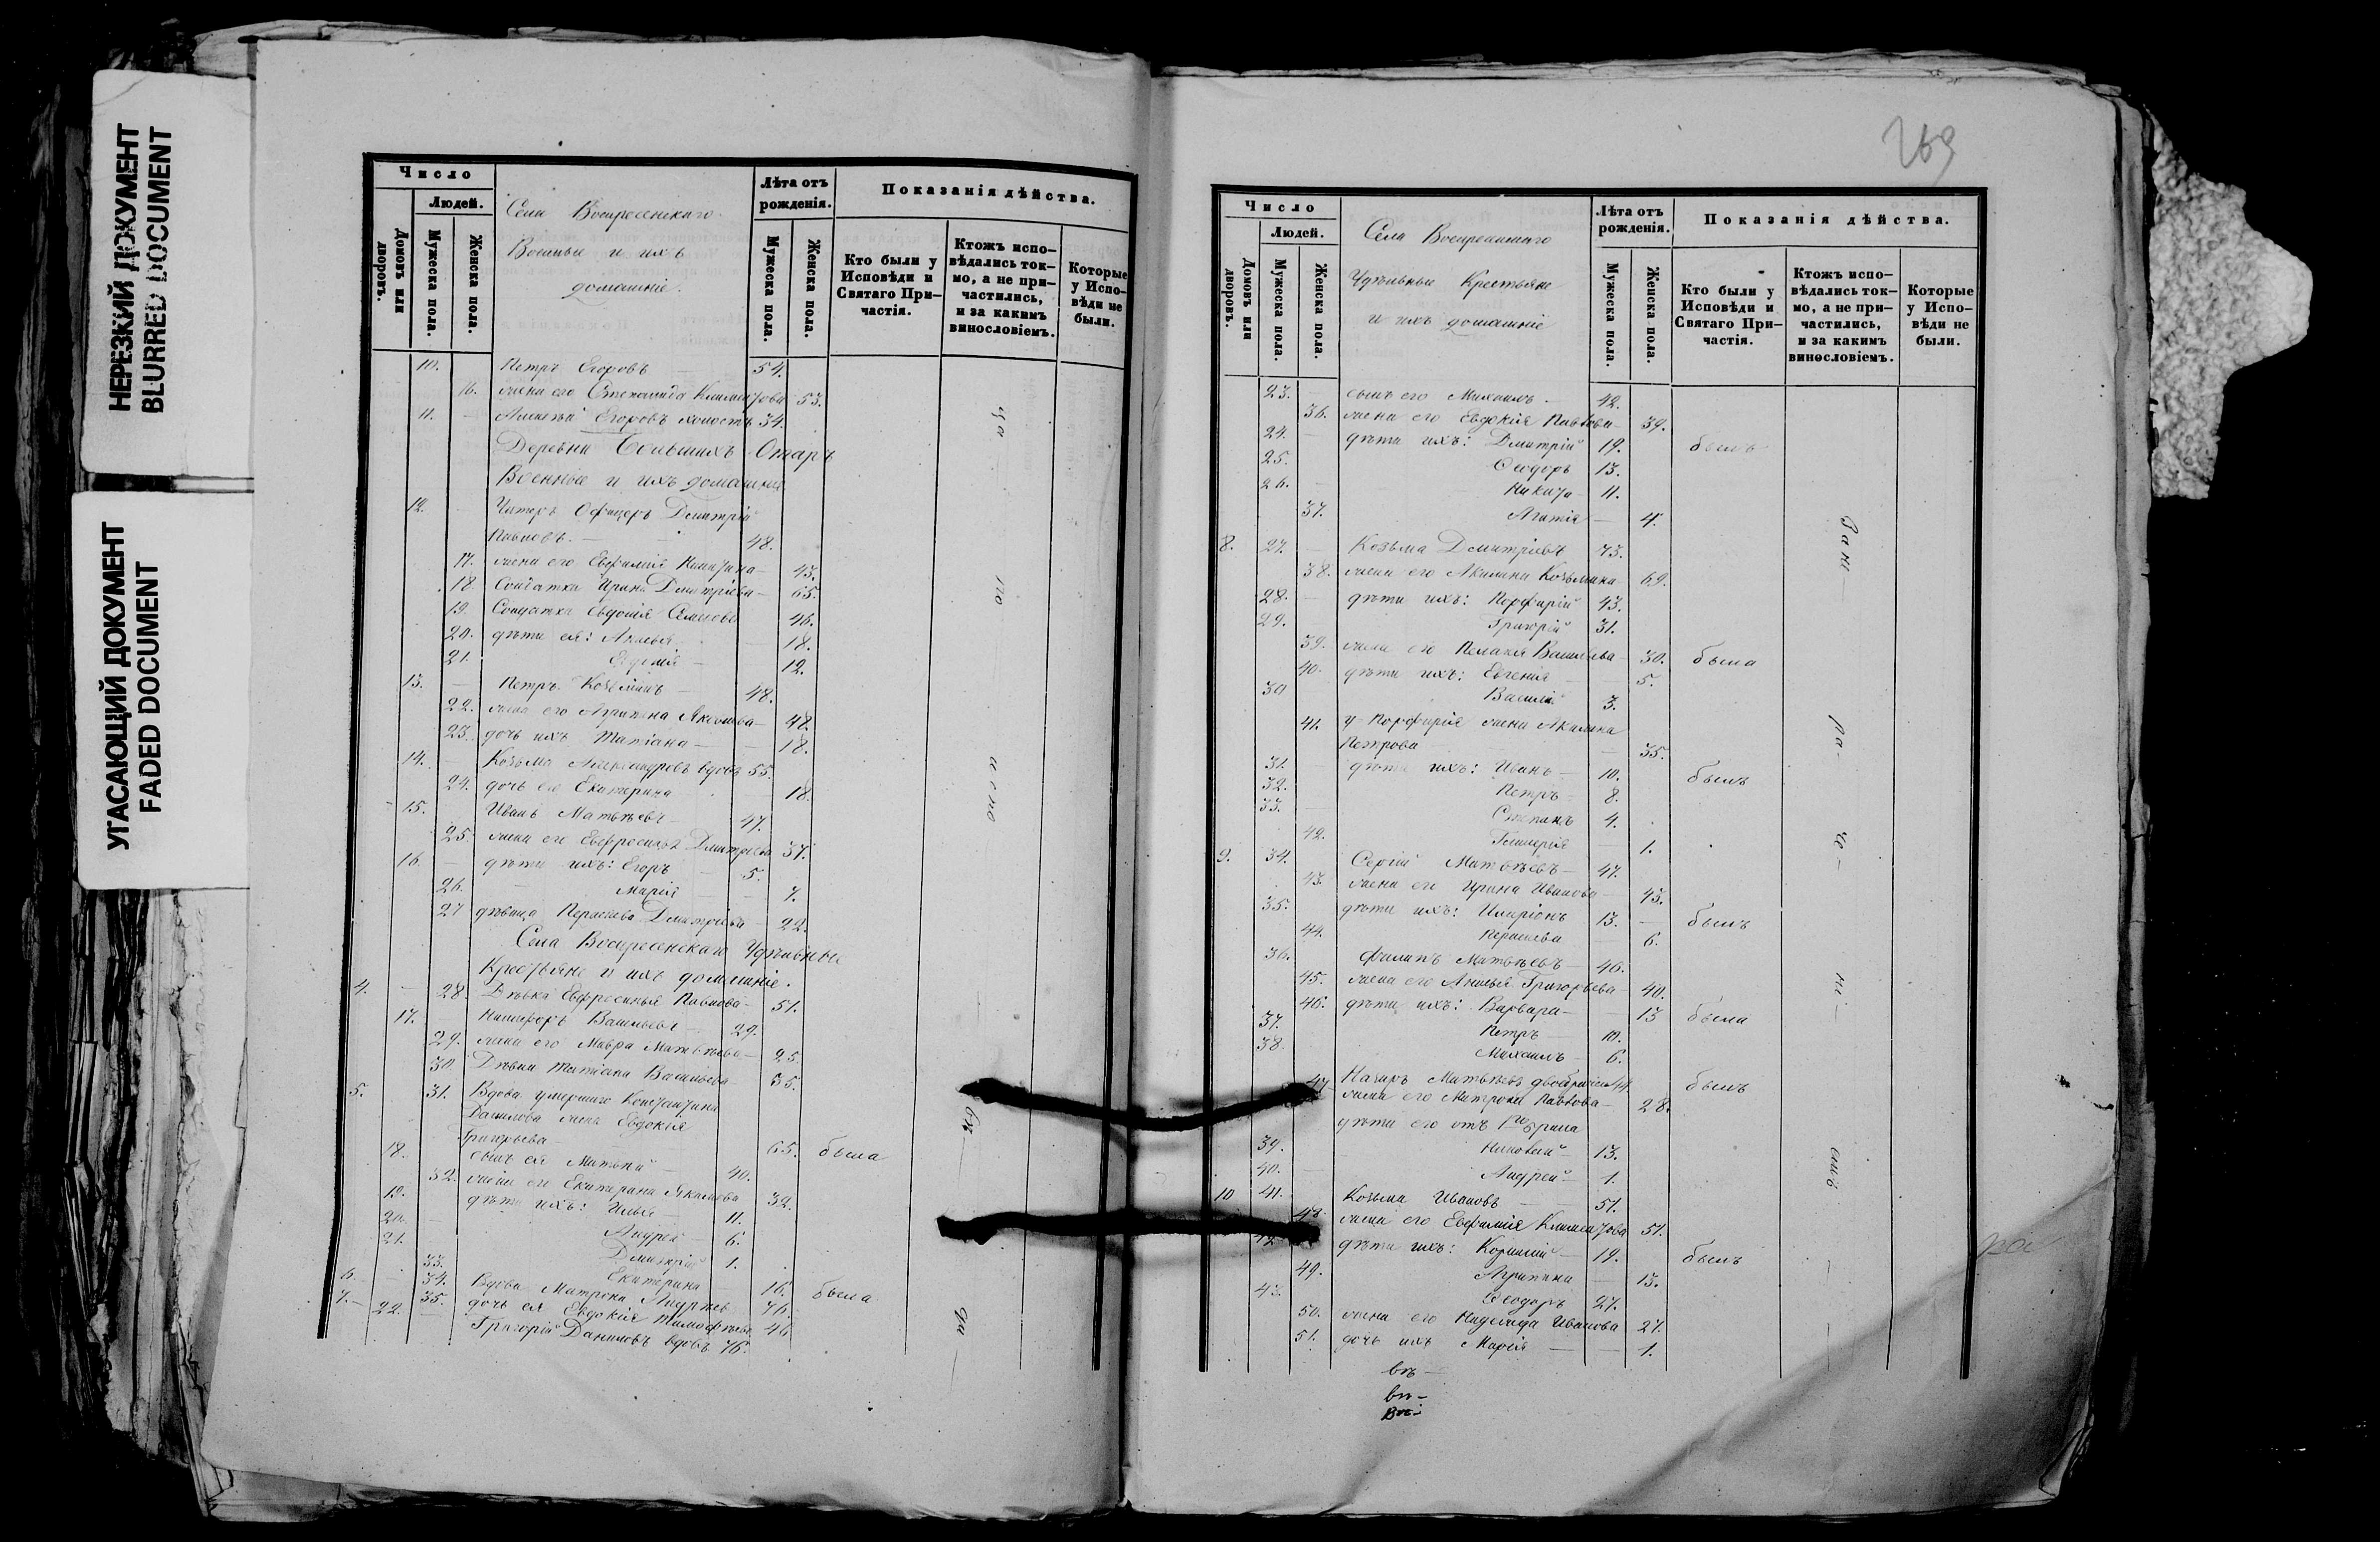 НЕРЕЗКИЙ ДОКУМЕНТ
BLURRED DOCUMENT
УГАСАЮЩИЙ ДОКУМЕНТ
FADED DOCUMENT
Число
Людей.
Домовъ или дворовъ.
Мужеска пола.
Женска пола.
Села Воскресенскаго
Военные и ихъ
домашніе.
Лѣта отъ рожденія.
Мужеска пола.
Женска пола.
Показанія дѣйства.
Кто были у Исповѣди и Святаго При-
частія.
Ктожъ испо-
вѣдались ток-
мо, а не при-
частились,
и за какимъ
винословіемъ.
Которые
у Испо-
вѣди не
были.
10. Петръ Егоровъ 54.
16. жена его Степанида Климентова 53.
11. Алексѣй Егоровъ холостъ 34.
Деревни Большихъ Отаръ
Военные и ихъ домашніе
12. Унтеръ Офицеръ Дмитрій
Павловъ 48.
17. жена его Евфимія Никитина 43.
18. Солдатка Ирина Дмитріева 65.
19. Солдатка Евдокія Семенова 46.
20. дѣти ея: 18.
21. 12.
13. Петръ Козьминъ 48.
22. жена его Агрипена Яковлева 48.
23. дочь ихъ Татіана 18.
14. Козьма Александровъ вдовъ 55.
24. дочь его Екатерина 18.
15. Иванъ Матвѣевъ 47.
25. жена его Евфросинья Дмитріева 37.
16. дѣти ихъ: Егоръ 5.
26. Марія 7.
27 дѣвица Параскева Дмитріева 22.
Села Воскресенскаго Удѣльные
Крестьяне и ихъ домашніе.
4. 28. Дѣвка Евфросинья Павлова 51.
17. Никифоръ Васильевъ 29.
29. жена его Мавра Матвѣева 25.
30 Дѣвка Татіана Васильева 35.
5. 31. Вдова умершаго Константина
Данилова жена Евдокія
Григорьева 65. была
18. сынъ ея Матвѣй 40.
32. жена его Екатерина Яковлева 32.
19. дѣти ихъ: Илья 11.
20. Андрей 6.
21. Дмитрій 1.
33. Екатерина 16. была
6. 34. Вдова Матрона Андреева 76.
35. дочь ея Евдокія Тимофѣева 46
7. 22. Григорій Даниловъ вдовъ 76.
269
Число
Людей.
Домовъ или дворовъ.
Мужеска пола.
Женска пола.
Села Воскресенскаго
Удѣльные Крестьяне
и ихъ домашніе
Лѣта отъ рожденія.
Мужеска пола.
Женска пола.
Показанія дѣйства.
Кто были у Исповѣди и Святаго При-
частія.
Ктожъ испо-
вѣдались ток-
мо, а не при-
частились,
и за какимъ
винословіемъ.
Которые
у Испо-
вѣди не
были.
23. сынъ его Михаилъ 42.
36. жена его Евдокія Павлова 39.
24. дѣти ихъ: Дмитрій 19. былъ
25. Ѳеодоръ 13.
26. Никита 11.
37. Агатія 4.
8. 27. Козьма Дмитріевъ 73.
38. жена его Акилина Козьмина 69.
28. дѣти ихъ: Порфирій 43.
29. Григорій 31.
39. жена его Пелагея Васильева 30. была
40. дѣти ихъ: Евгенія 5.
30 Василій 3.
41. у Порфирія жена Акилина
Петрова 35.
31. дѣти ихъ: Иванъ 10. былъ
32. Петръ 8.
33. Степанъ 4.
42. Гликерія 1.
9. 34. Сергій Матвѣевъ 47.
43. жена его Ирина Иванова 43.
35. дѣти ихъ: Иларіонъ 13. былъ
44. Параскева 6.
36. Филипъ Матвѣевъ 46.
45. жена его Анисья Григорьева 40.
46. дѣти ихъ: Варвара 13 была
37. Петръ 10.
38. Михаилъ 6.
Назаръ Матвѣевъ 44. былъ
47. жена его Матрона Павлова 28.
дѣти его отъ 1го брака
39. 13.
40. Андрей 1.
10 41. Козьма Ивановъ 51.
48. жена его Евфимія Климентова 51.
42. дѣти ихъ: Корнилій 19. былъ
49. Агрипина 13.
43. Ѳеодоръ 27.
50. жена его Надежда Иванова 27.
51. дочь ихъ Марія 1.